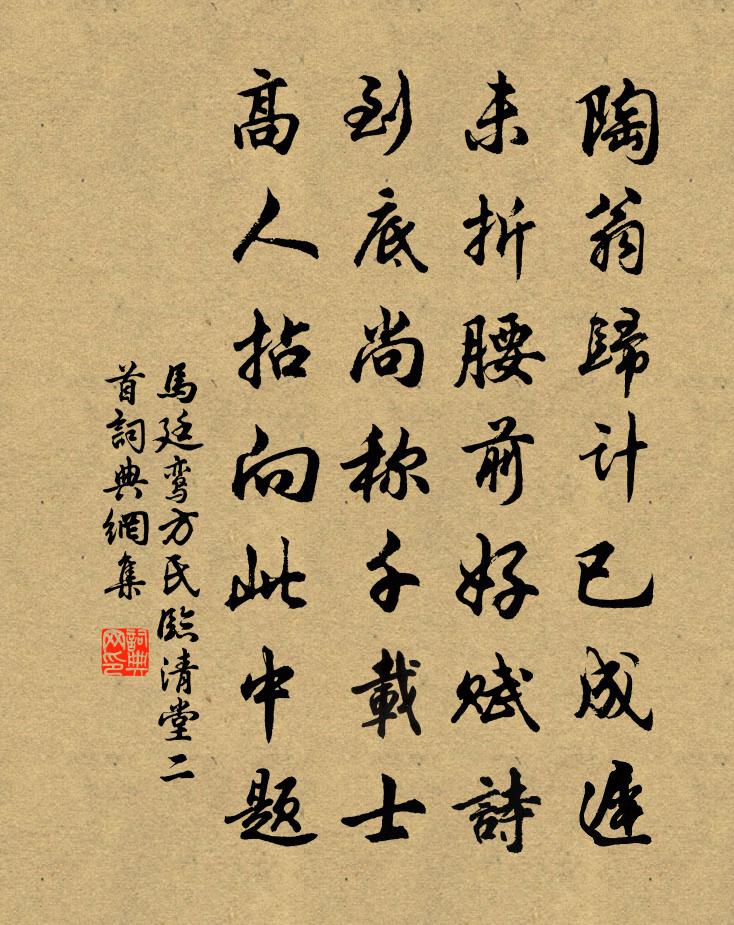 陶翁歸計已成遲
未折腰前好赋詩
到底尚称千載士
高人拈向此中題
馬廷鸾方民臨清堂二
首詞典網集
詞典网印